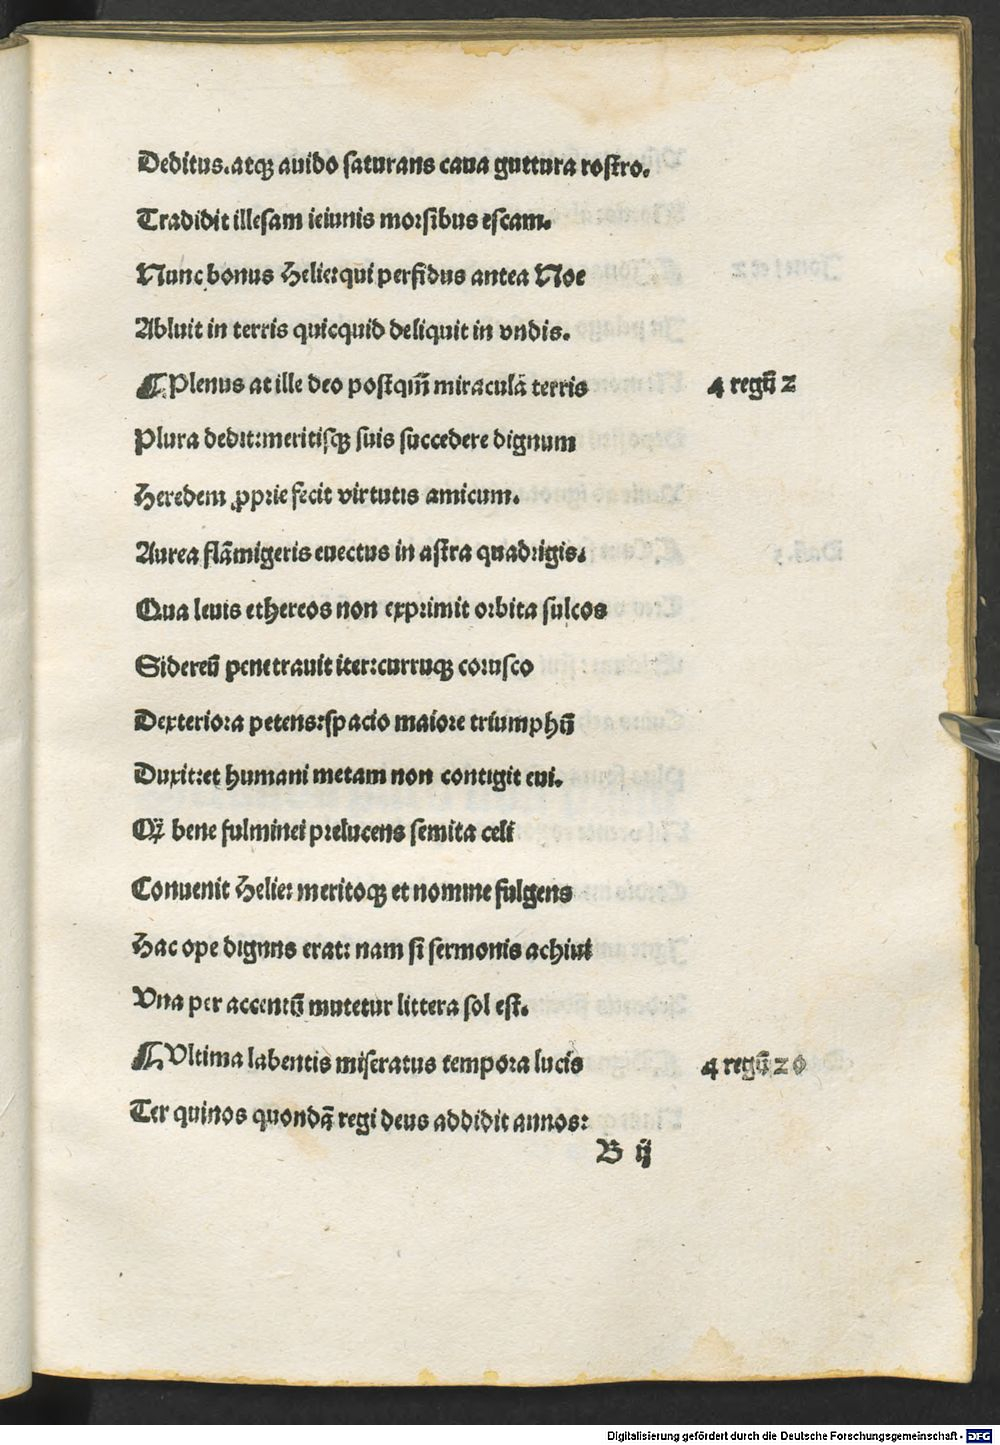 Deditus.atqꝫ auido saturans caua guttura rostro.
Tradidit illesam ieiunis morsibus escam.
Nunc bonus Helie:qui perfidus antea Noe
Abluit in terris quicquid deliquit in vndis.
¶ Plenus at ille deo postqm̄ miraculā terris
4 regū 2
Plura dedit:meritisqꝫ suis succedere dignum
Heredem ꝓprie fecit virtutis amicum.
Aurea flāmigeris euectus in astra quadrigis.
Qua leuis ethereos non exprimit orbita sulcos
Sidereū penetrauit iter:curruqꝫ corusco
Dexteriora petens:spacio maiore triumphū
Duxit:et humani metam non contigit eui.
Q̄ bene fulminei prelucens semita celi
Conuenit Helie: meritoqꝫ et nomine fulgens
Hac ope dignus erat: nam si sermonis achiui
Vna per accentū mutetur littera sol est.
¶ Vltima labentis miseratus tempora lucis
4 regū 20
Ter quinos quondā regi deus addidit annos:
B ij
Digitalisierung gefördert durch die Deutsche Forschungsgemeinschaft - DFG